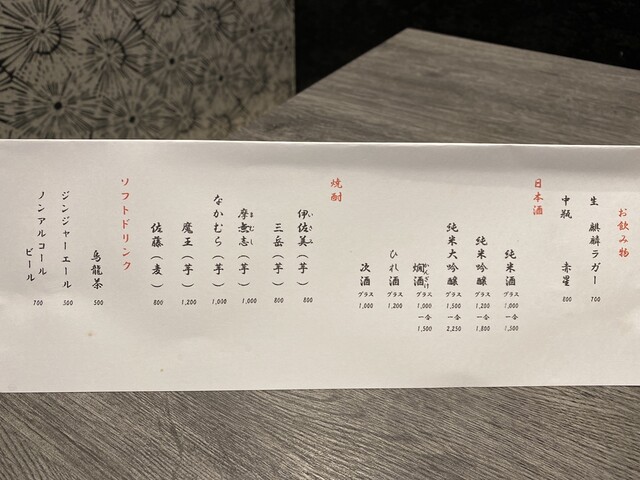 お飲み物
生 麒麟ラガー 700
中瓶 赤星 800
日本酒
純米酒 グラス 1,000 一合 1,500
純米吟醸 グラス 1,200 一合 1,800
純米大吟醸 グラス 1,500 一合 2,250
燗酒 グラス 1,000 一合 1,500
ひれ酒 グラス 1,200
次酒 グラス 1,000
焼酎
伊佐美（芋） 800
いさみ
三岳（芋） 800
摩無志（芋） 1,000
まむし
なかむら（芋） 1,000
魔王（芋） 1,200
佐藤（麦） 800
ソフトドリンク
烏龍茶 500
ジンジャーエール 500
ノンアルコール
ビール 700